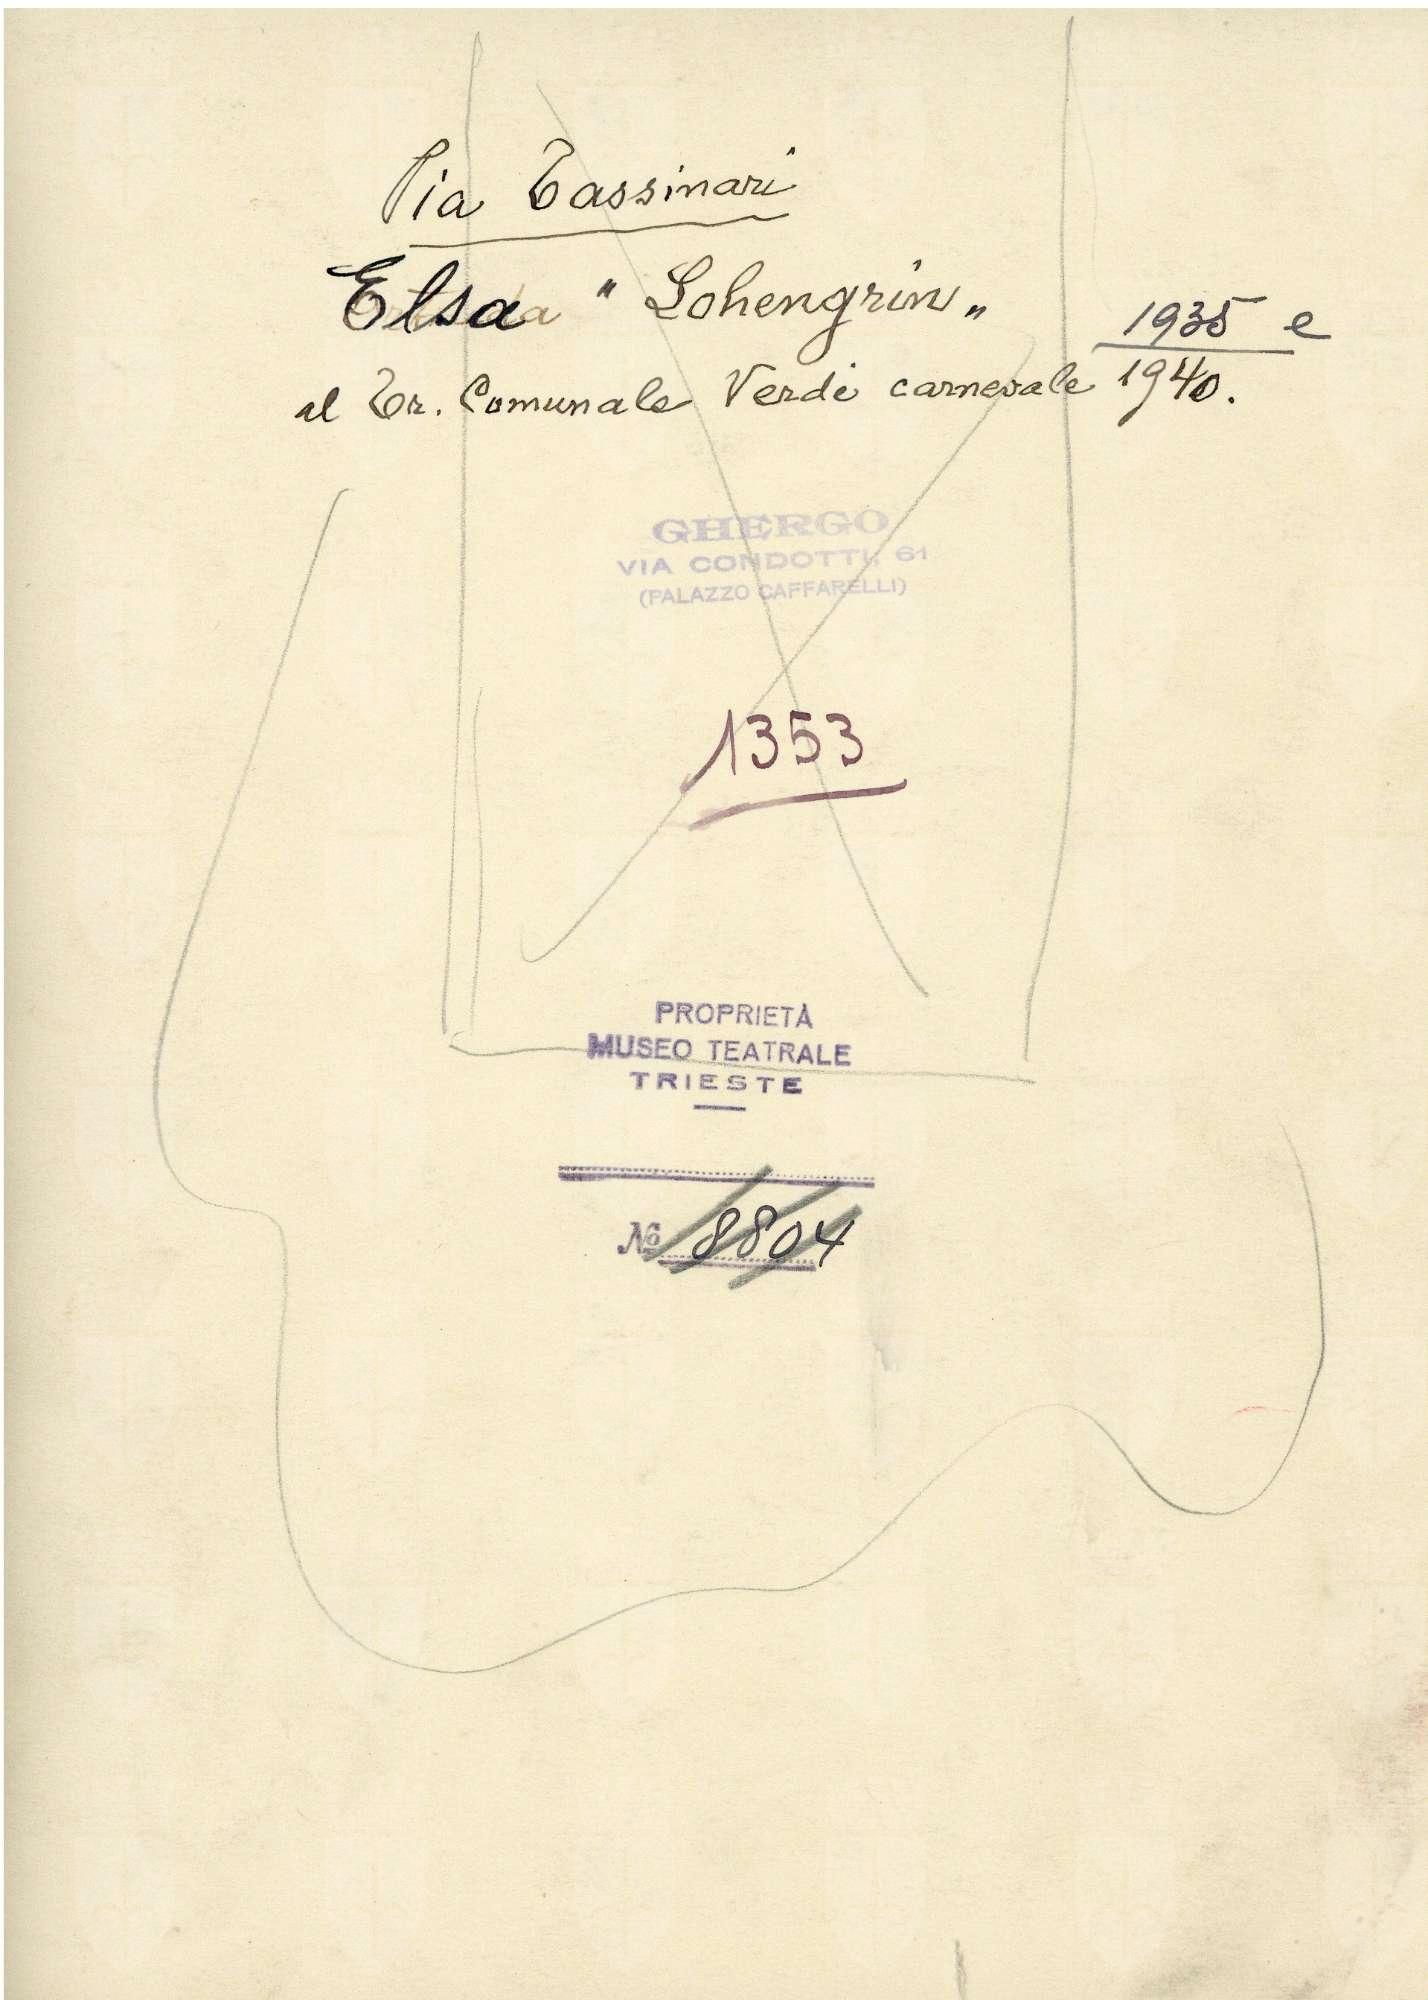 Pia Tassinari
Elsa " Lohengrin „
1935 e
al Tr. Comunale Verdi carnevale 1940.
GHERGO
VIA CONDOTTI, 61
(PALAZZO CAFFARELLI)
1353
PROPRIETÀ
MUSEO TEATRALE
TRIESTE
№ 8804